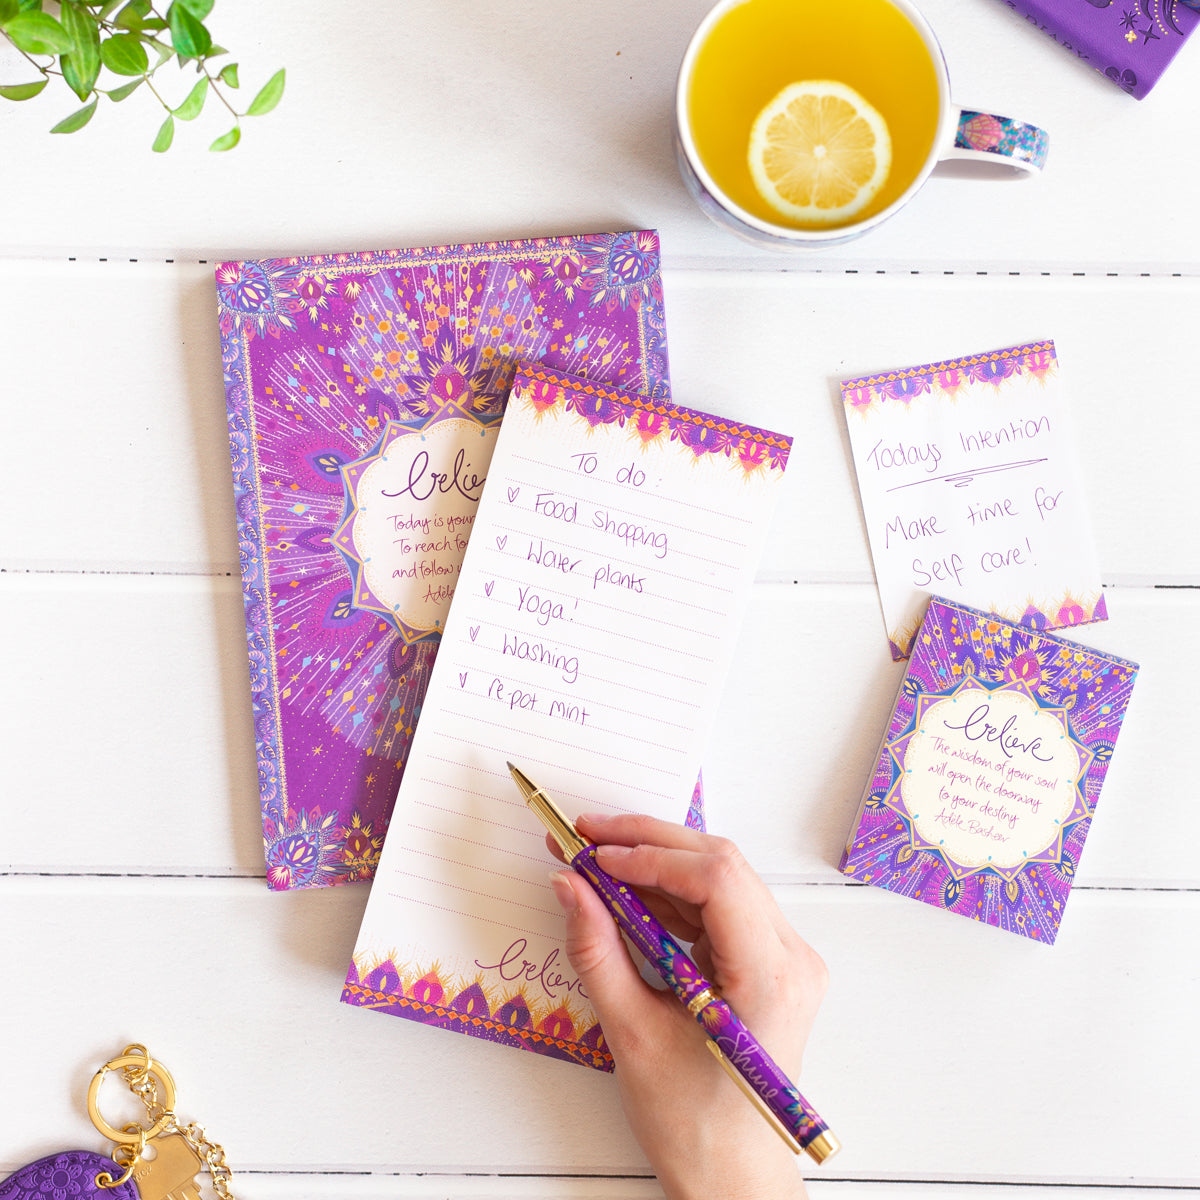 DIARY
believe
Today is your
To reach fo
and follow
Adele
To do :
Food Shopping
Water plants
Yoga!
Washing
re-pot mint
believe
Todays Intention
Make time for
Self care!
believe
The wisdom of your soul
will open the doorway
to your destiny
Adèle Basheer
Shine